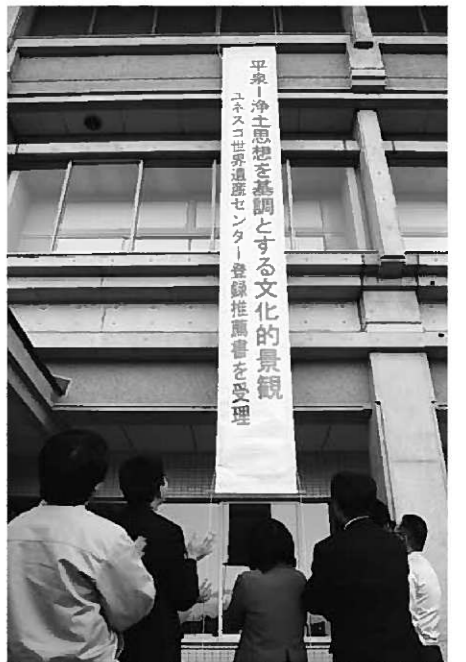 平泉ー浄土思想を基調とする文化的景観
ユネスコ世界遺産センター登録推薦書を受理